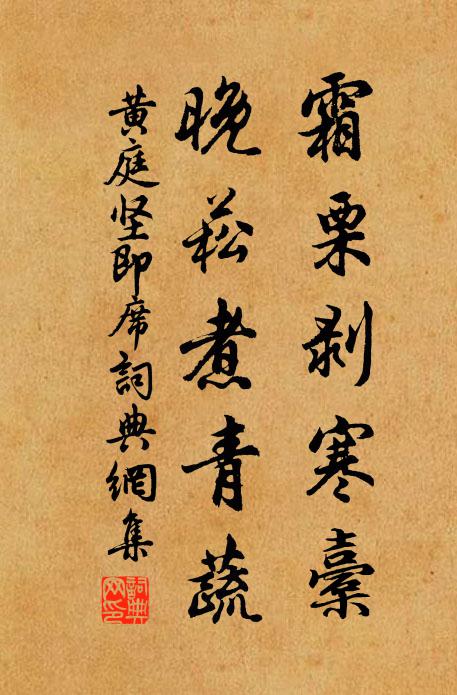 霜栗剥寒橐
晚菘煮青蔬
黄庭坚即席詞典網集
詞典网印